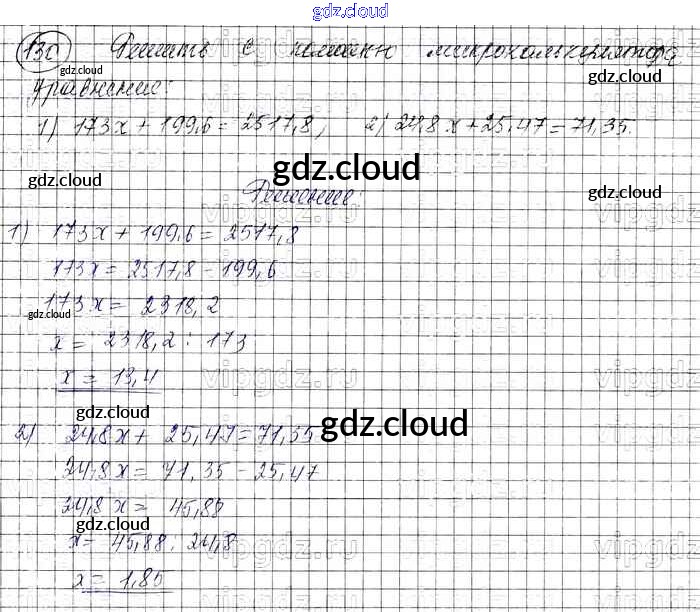 gdz.cloud
130 Решить с помощью микрокалькулятора
gdz.cloud gdz.cloud
уравнение:
1) 173x + 199,6 = 2517,8, 2) 24,8x + 25,47 = 71,35.
gdz.cloud gdz.cloud gdz.cloud
Решение:
1) 173x + 199,6 = 2517,8
173x = 2517,8 - 199,6
173x = 2318,2
gdz.cloud
x = 2318,2 : 173
x = 13,4
vipgdz.ru
gdz.cloud gdz.cloud
2) 24,8x + 25,47 = 71,35
24,8x = 71,35 - 25,47
24,8x = 45,88
gdz.cloud
x = 45,88 : 24,8
vipgdz.ru
x = 1,85
gdz.cloud